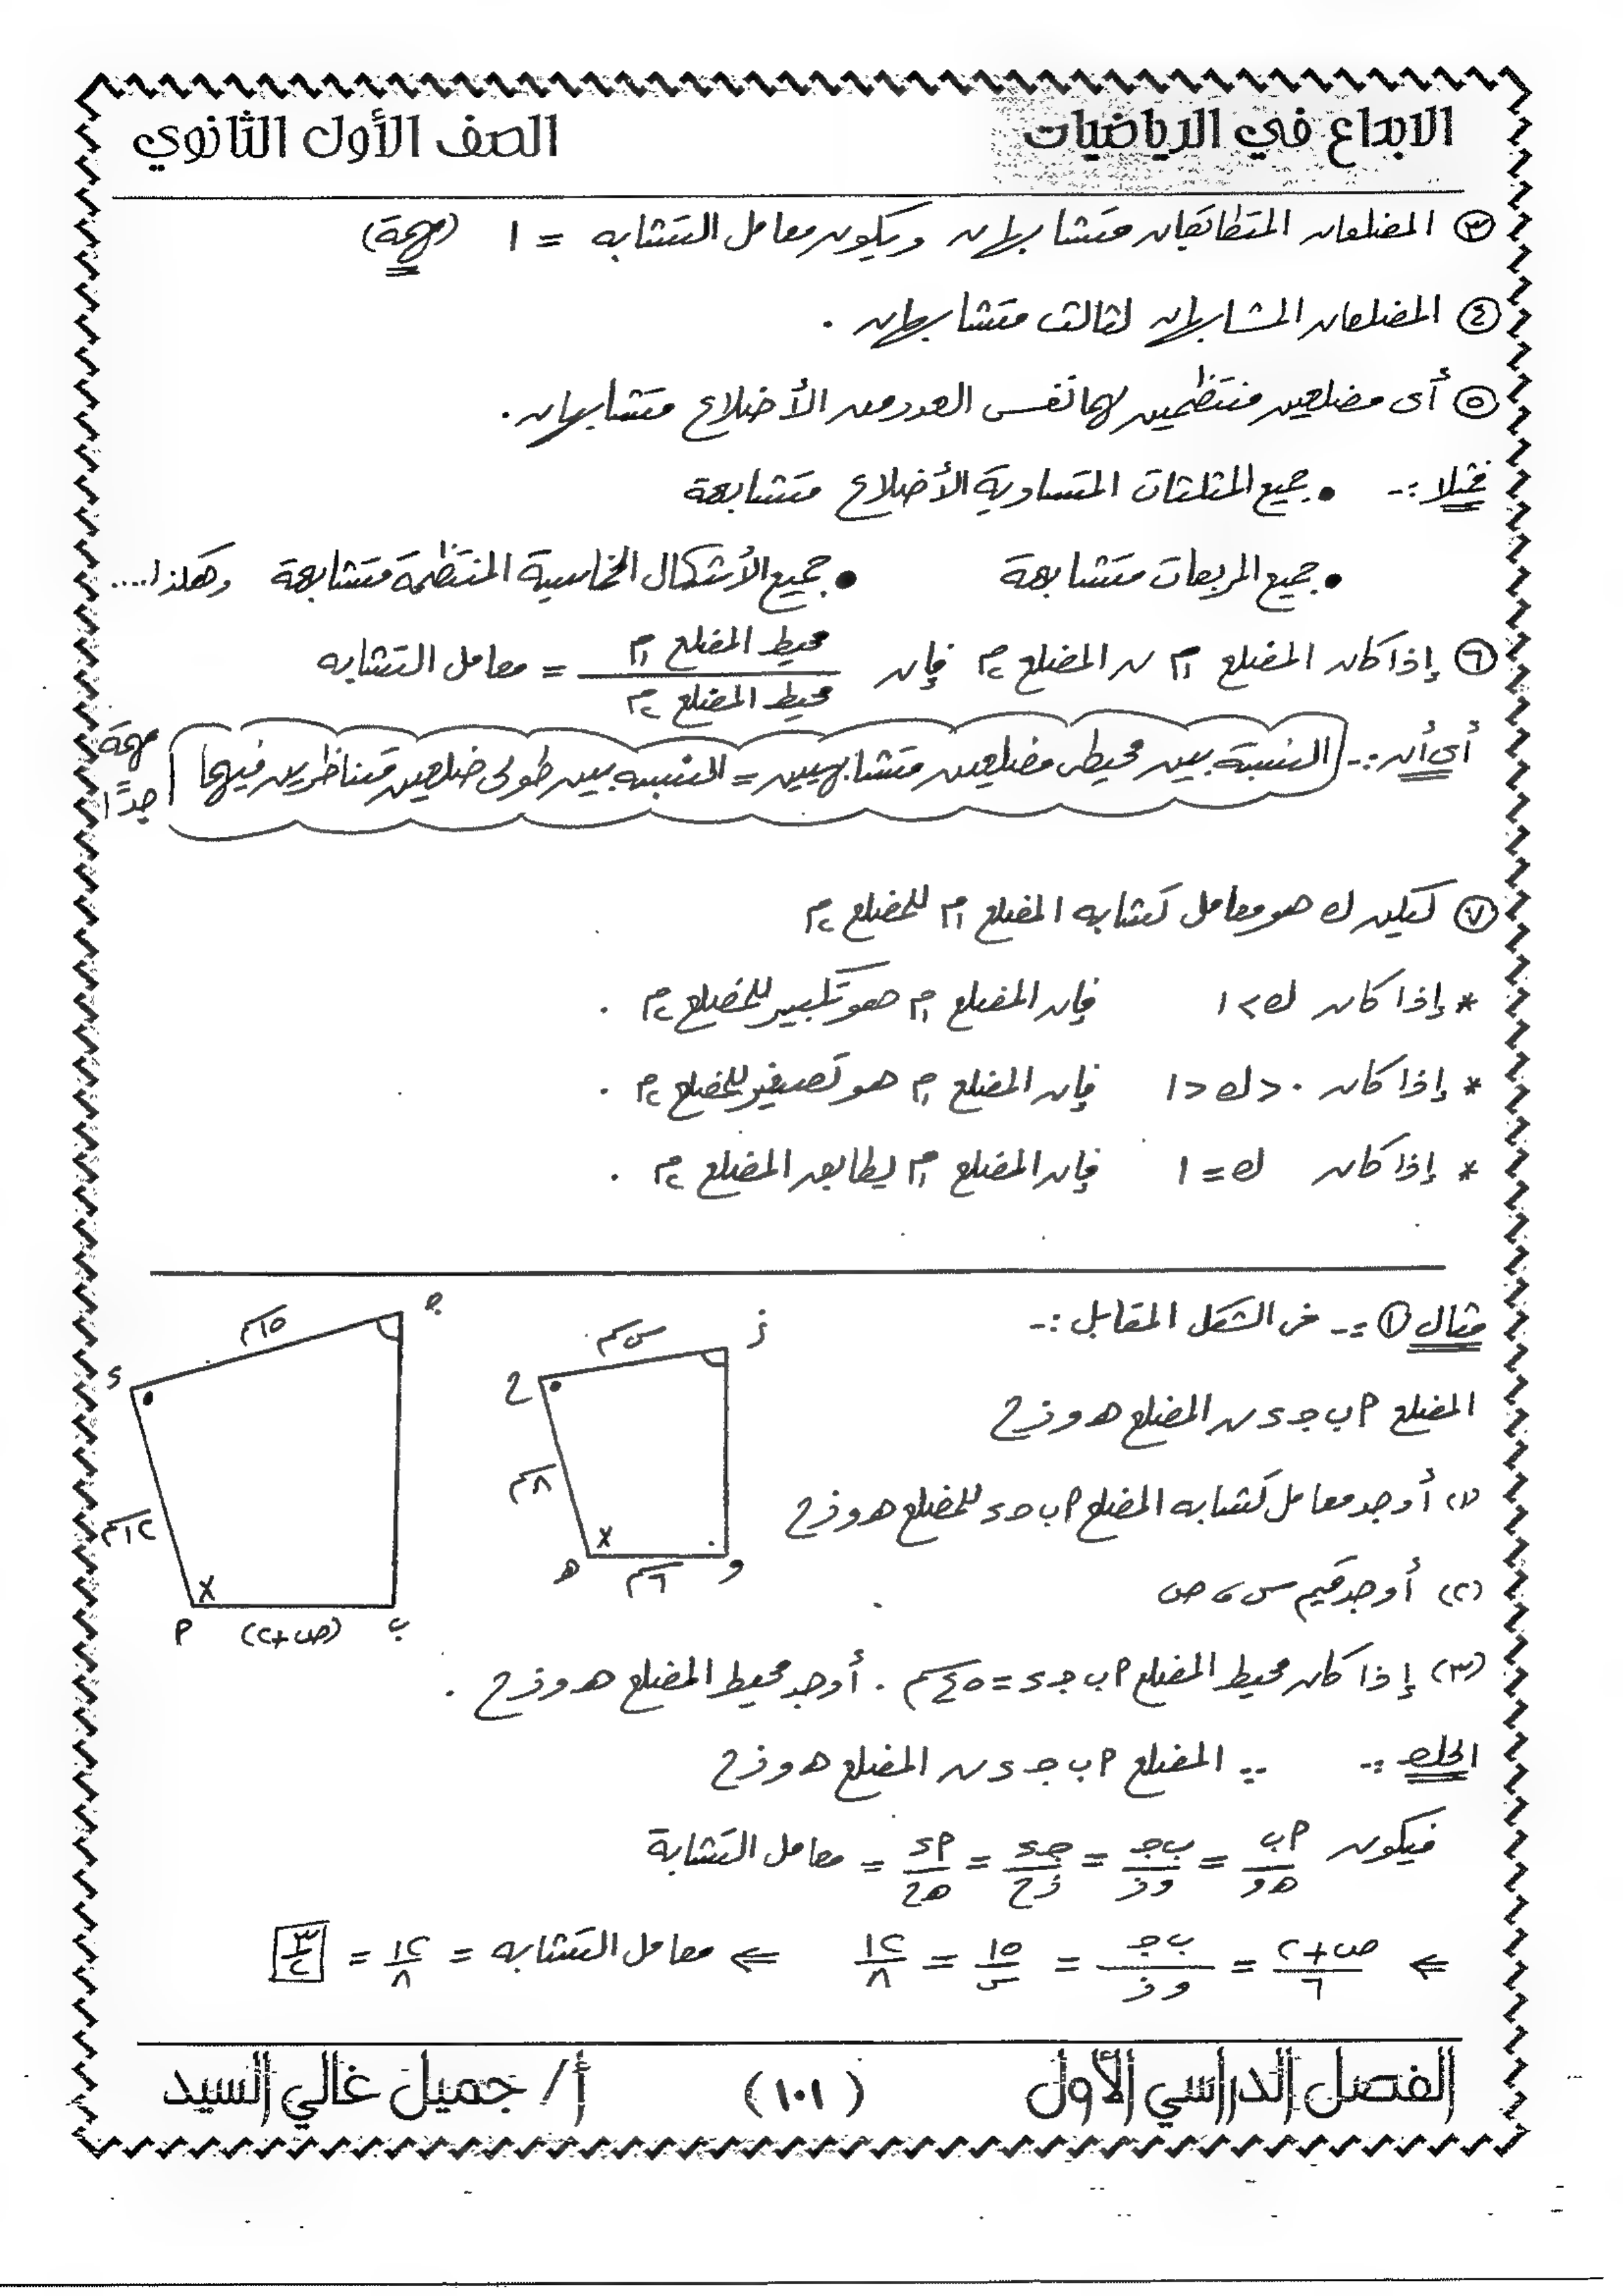 الابداع في الرياضيات
الصف الأول الثانوي
٣ المضلعان المتطابقان متشابهان ويكون معامل التشابه = ١ (مهمة)
٤ المضلعان المشابهان لثالث متشابهان .
٥ أى مضلعين منتظمين لهما نفس العدد من الأضلاع متشابهان .
فمثلا :- • جميع المثلثات المتساوية الأضلاع متشابهة
• جميع المربعات متشابهة • جميع الأشكال الخماسية المنتظمة متشابهة وهكذا ....
٦ إذا كان المضلع م١ ~ المضلع م٢ فإن محيط المضلع م١ / محيط المضلع م٢ = معامل التشابه
أى أن :- النسبة بين محيطى مضلعين متشابهيين = النسبة بين طولى ضلعين متناظرين فيهما
مهمة جدًا
٧ ليكن ك هو معامل تشابه المضلع م١ للمضلع م٢
* إذا كان ك > ١ فإن المضلع م١ هو تكبير للمضلع م٢ .
* إذا كان ٠ < ك < ١ فإن المضلع م١ هو تصغير للمضلع م٢ .
* إذا كان ك = ١ فإن المضلع م١ يطابق المضلع م٢ .
مثال ١ :- فى الشكل المقابل :-
المضلع أ ب جـ د ~ المضلع هـ و ز ح
(١) أوجد معامل تشابه المضلع أ ب جـ د للمضلع هـ و ز ح
(٢) أوجد قيم س ، ص
(٣) إذا كان محيط المضلع أ ب جـ د = ٤٥ سم . أوجد محيط المضلع هـ و ز ح .
ز
س سم
ح
٨سم
x
هـ
٦سم
و
جـ
١٥سم
د
١٢سم
x
أ
(ص+٢)
ب
الحل :- ∵ المضلع أ ب جـ د ~ المضلع هـ و ز ح
فيكون أ ب / هـ و = ب جـ / و ز = جـ د / ز ح = أ د / هـ ح = معامل التشابة
⇐ ص+٢ / ٦ = ب جـ / و ز = ١٥ / س = ١٢ / ٨ ⇐ معامل التشابه = ١٢ / ٨ = ٣ / ٢
الفصل الدراسي الأول
(١٠١)
أ/ جميل غالي السيد